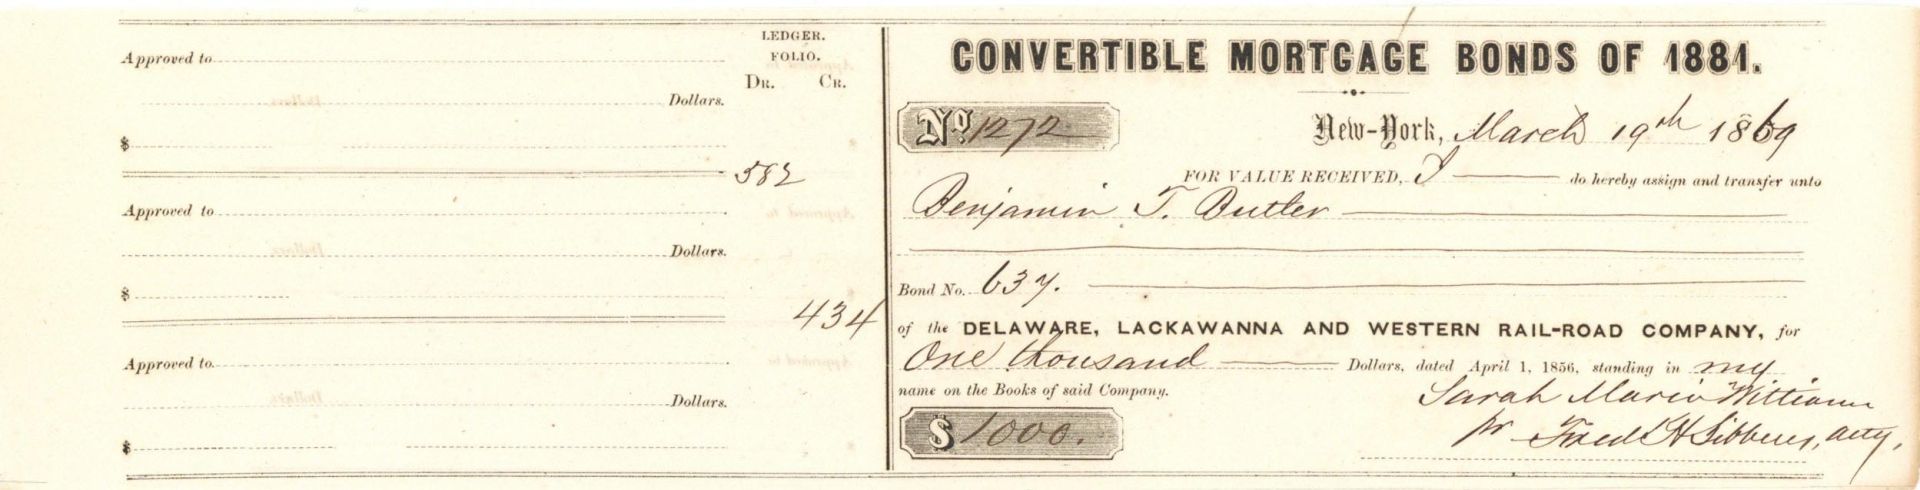 LEDGER.
FOLIO.
Dr. Cr.
Approved to
Dollars.
$
582
Approved to
Dollars.
$
434
Approved to
Dollars.
$
CONVERTIBLE MORTGAGE BONDS OF 1881.
No. 1272
New-York, March 19th 1869
FOR VALUE RECEIVED, I do hereby assign and transfer unto
Benjamin T. Butler
Bond No. 637.
of the DELAWARE, LACKAWANNA AND WESTERN RAIL-ROAD COMPANY, for
One thousand Dollars, dated April 1, 1856, standing in my
name on the Books of said Company.
$ 1000.
Sarah Maria
pr Fred H atty,